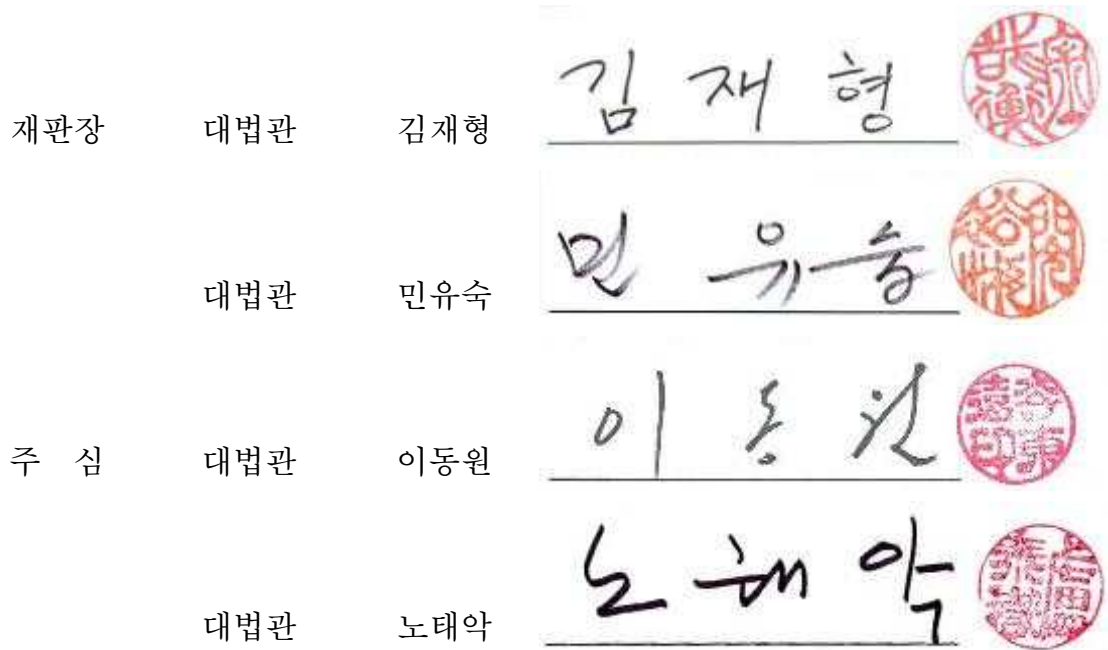 재판장 대법관 김재형 김재형
대법관 민유숙 민유숙
주 심 대법관 이동원 이동원
대법관 노태악 노태악